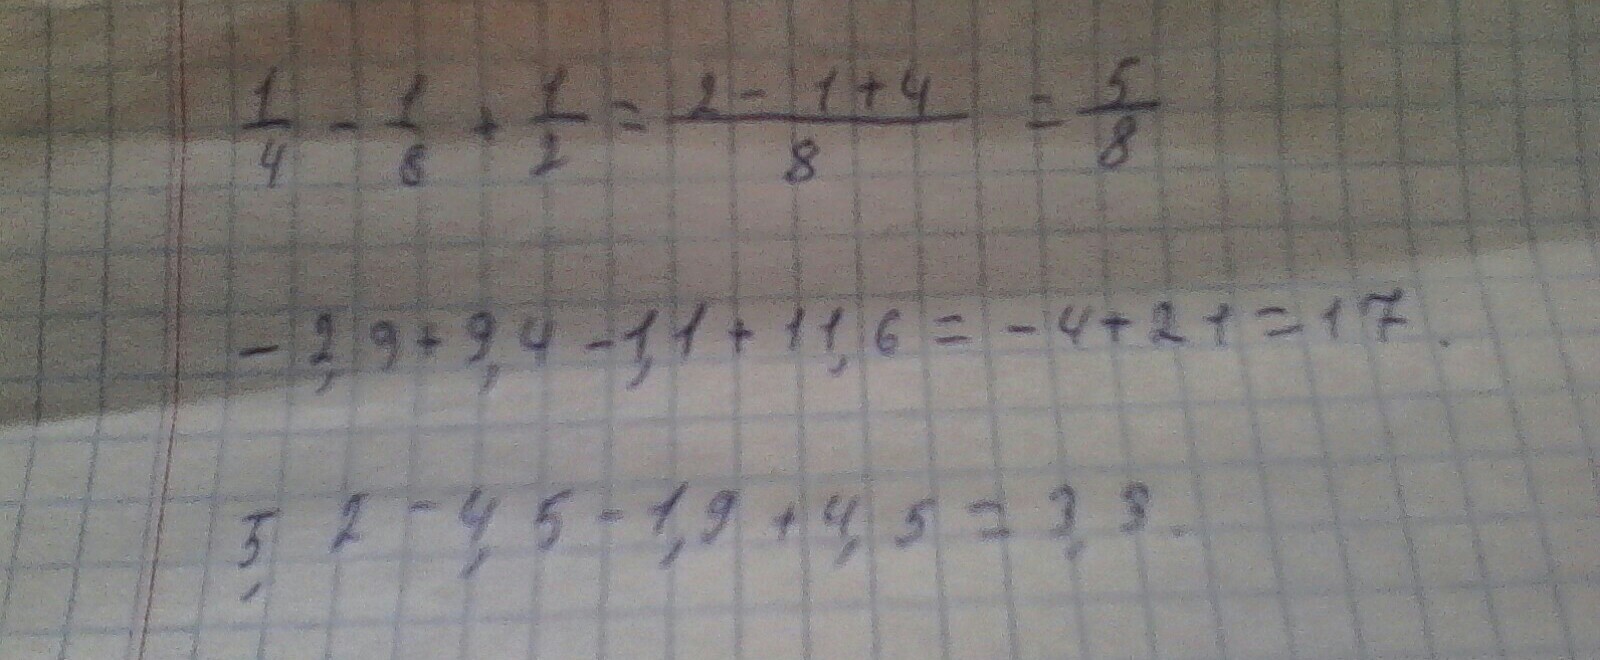 1/4 - 1/8 + 1/2 = (2 - 1 + 4)/8 = 5/8
- 2,9 + 9,4 - 1,1 + 11,6 = - 4 + 21 = 17.
5,2 - 4,5 - 1,9 + 4,5 = 3,3.